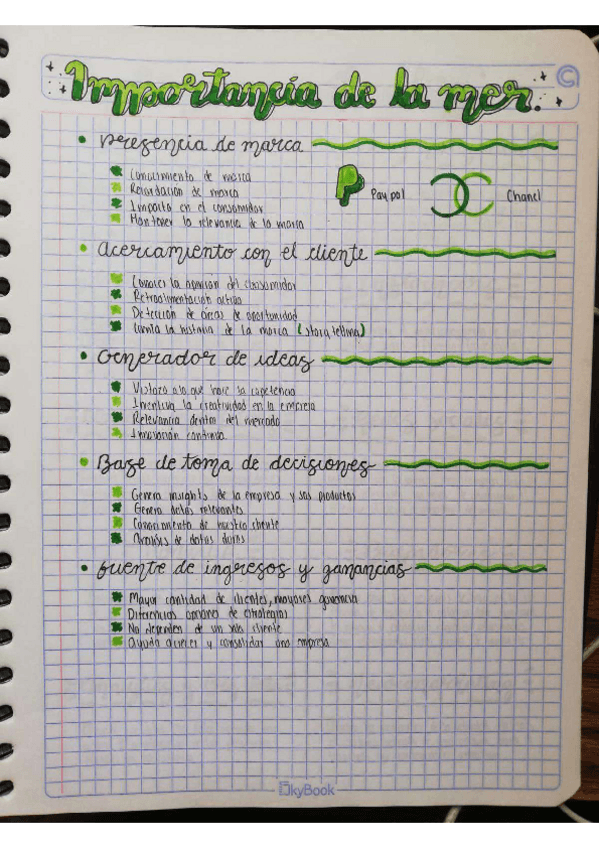 Importancia de la mer.
Presencia de marca
Conocimiento de marca
Recordación de marca
Impacto en el consumidor
Mantener la relevancia de la marca
Paypal
Chanel
Acercamiento con el cliente
Conocer la opinión del consumidor
Retroalimentación activa
Detección de áreas de oportunidad
la historia de la marca (story telling)
Generador de ideas
Vistazo a lo que hace la
Incentiva la creatividad en la empresa
Relevancia dentro del mercado
Innovación continua
Base de toma de decisiones
Genera insights de la empresa y sus productos
Genera datos relevantes
Conocimiento de nuestro cliente
Análisis de datos duros
Fuente de ingresos y ganancias
Mayor cantidad de clientes, mayores
Diferencias de estrategias
No dependen de un solo cliente
Ayuda a crecer y consolidar una empresa
SkyBook